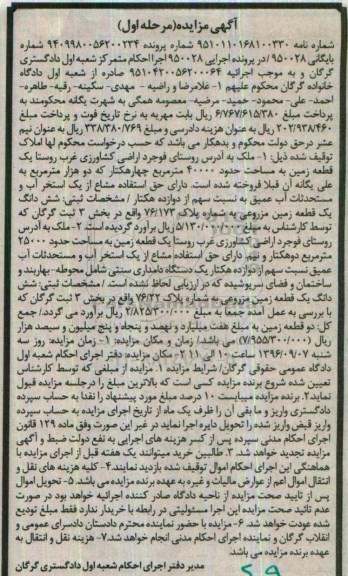 آگهی مزایده(مرحله اول)
شماره نامه ۹۵۱۰۱۱۰۱۶۸۱۰۰۳۳۰ شماره پرونده ۹۴۰۹۹۸۰۰۵۶۲۰۰۲۳۴ شماره
بایگانی ۹۵۰۰۲۸ / در پرونده اجرایی ۹۵۰۰۲۸ اجرا احکام متمرکز شعبه اول دادگستری
گرگان و به موجب اجرائیه ۹۵۱۰۴۲۰۰۵۶۲۰۰۰۶۴ صادره از شعبه اول دادگاه
خانواده گرگان محکوم علیهم ۱- غلامرضا و راضیه - مهدی- سکینه- رقیه- طاهره-
احمد- علی- محمود- حمید- مرضیه- معصومه همگی به شهرت یگانه محکومند به
پرداخت مبلغ ۶/۷۶۷/۶۱۵/۳۸۰ ریال بابت مهریه به نرخ تاریخ فوت و پرداخت مبلغ
۲۰۲/۹۳۸/۴۶۰ ریال به عنوان هزینه دادرسی و مبلغ ۳۳۸/۳۸۰/۷۶۹ ریال به عنوان نیم
عشر در حق دولت محکوم و بدهکار می باشد که حسب درخواست محکوم لها املاک
توقیف شده ذیل: ۱- ملک به آدرس روستای فوجرد اراضی کشاورزی غرب روستا یک
قطعه زمین به مساحت حدود ۴۰۰۰۰ مترمربع چهارهکتار که دو هزار مترمربع به
علی یگانه آن قبلا فروخته شده است. دارای حق استفاده مشاع از یک استخر آب و
مستحدثات آب عمیق به نسبت سهم از دوازده هکتار / مشخصات ثبتی: شش دانگ
یک قطعه زمین مزروعی به شماره پلاک ۷۶/۱۷۳ واقع در بخش ۳ ثبت گرگان که
توسط کارشناس به مبلغ ۵/۱۳۰/۰۰۰/۰۰۰ ریال برآورد گردیده است. ۲- ملک به آدرس
روستای فوجرد اراضی کشاورزی غرب روستا یک قطعه زمین به مساحت حدود ۲۵۰۰۰
مترمربع دوهکتار و نیم دارای حق استفاده مشاع از یک استخر آب و مستحدثات آب
عمیق نسبت سهم از دوازده هکتار یک دستگاه دامداری سنتی شامل محوطه- بهاربند و
ساختمان و فضای سرپوشیده که در ارزیابی لحاظ نشده است. / مشخصات ثبتی: شش
دانگ یک قطعه زمین مزروعی به شماره پلاک ۷۶/۲۲ واقع در بخش ۳ ثبت گرگان که
با بررسی به عمل آمده جمعا به مبلغ ۲/۸۲۵۳۰۰/۰۰۰ ریال برآورد می گردد./ جمع
کل: دو قطعه زمین به مبلغ هفت میلیارد و نهصد و پنجاه و پنج میلیون و سیصد هزار
ریال (۷/۹۵۵/۳۰۰/۰۰۰) می باشد/ زمان و مکان مزایده: ۱- زمان مزایده: روز سه
شنبه ۱۳۹۶/۰۹/۰۷ ساعت ۱۰ الی ۱۱ ۲- مکان مزایده: دفتر اجرای احکام شعبه اول
دادگاه عمومی حقوقی گرگان/ شرایط مزایده ۱. مزایده از مبلغی که توسط کارشناس
تعیین شده شروع برنده مزایده کسی است که بالاترین مبلغ را درجلسه مزایده قبول
نماید۲. برنده مزایده میبایست ۱۰ درصد مبلغ مورد پیشنهاد را نقدا به حساب سپرده
دادگستری واریز و ما بقی آن را ظرف یک ماه از تاریخ اجرای مزایده به حساب سپرده
واریز قبض واریز شده را تحویل دایره اجرا نماید در غیر این صورت وفق ماده ۱۲۹ قانون
اجرای احکام مدنی سپرده پس از کسر هزینه های اجرایی به نفع دولت ضبط و آگهی
مزایده تجدید خواهد شد. ۳. طالبین خرید میتوانند یک هفته قبل از اجرای مزایده با
هماهنگی این اجرای احکام اموال توقیف شده بازدید نمایند.۴- کلیه هزینه های نقل و
انتقال اموال اعم از عوارض مالیات و غیره به عهده برنده مزایده می باشد. ۵- تحویل اموال
پس از تایید صحت مزایده از ناحیه دادگاه صادر کننده اجرائیه خواهد بود در صورت
عدم تائید صحت مزایده این اجرا مسئولیتی در رابطه با خریدار ندارد فقط مبلغ تودیع
شده عودت خواهد شد. ۶- مزایده با حضور نماینده محترم دادستان دادسرای عمومی و
انقلاب گرگان و نماینده اجرای احکام مدنی انجام خواهد شد.۷- هزینه نقل و انتقال به
عهده برنده مزایده می باشد.
مدیر دفتر اجرای احکام شعبه اول دادگستری گرگان